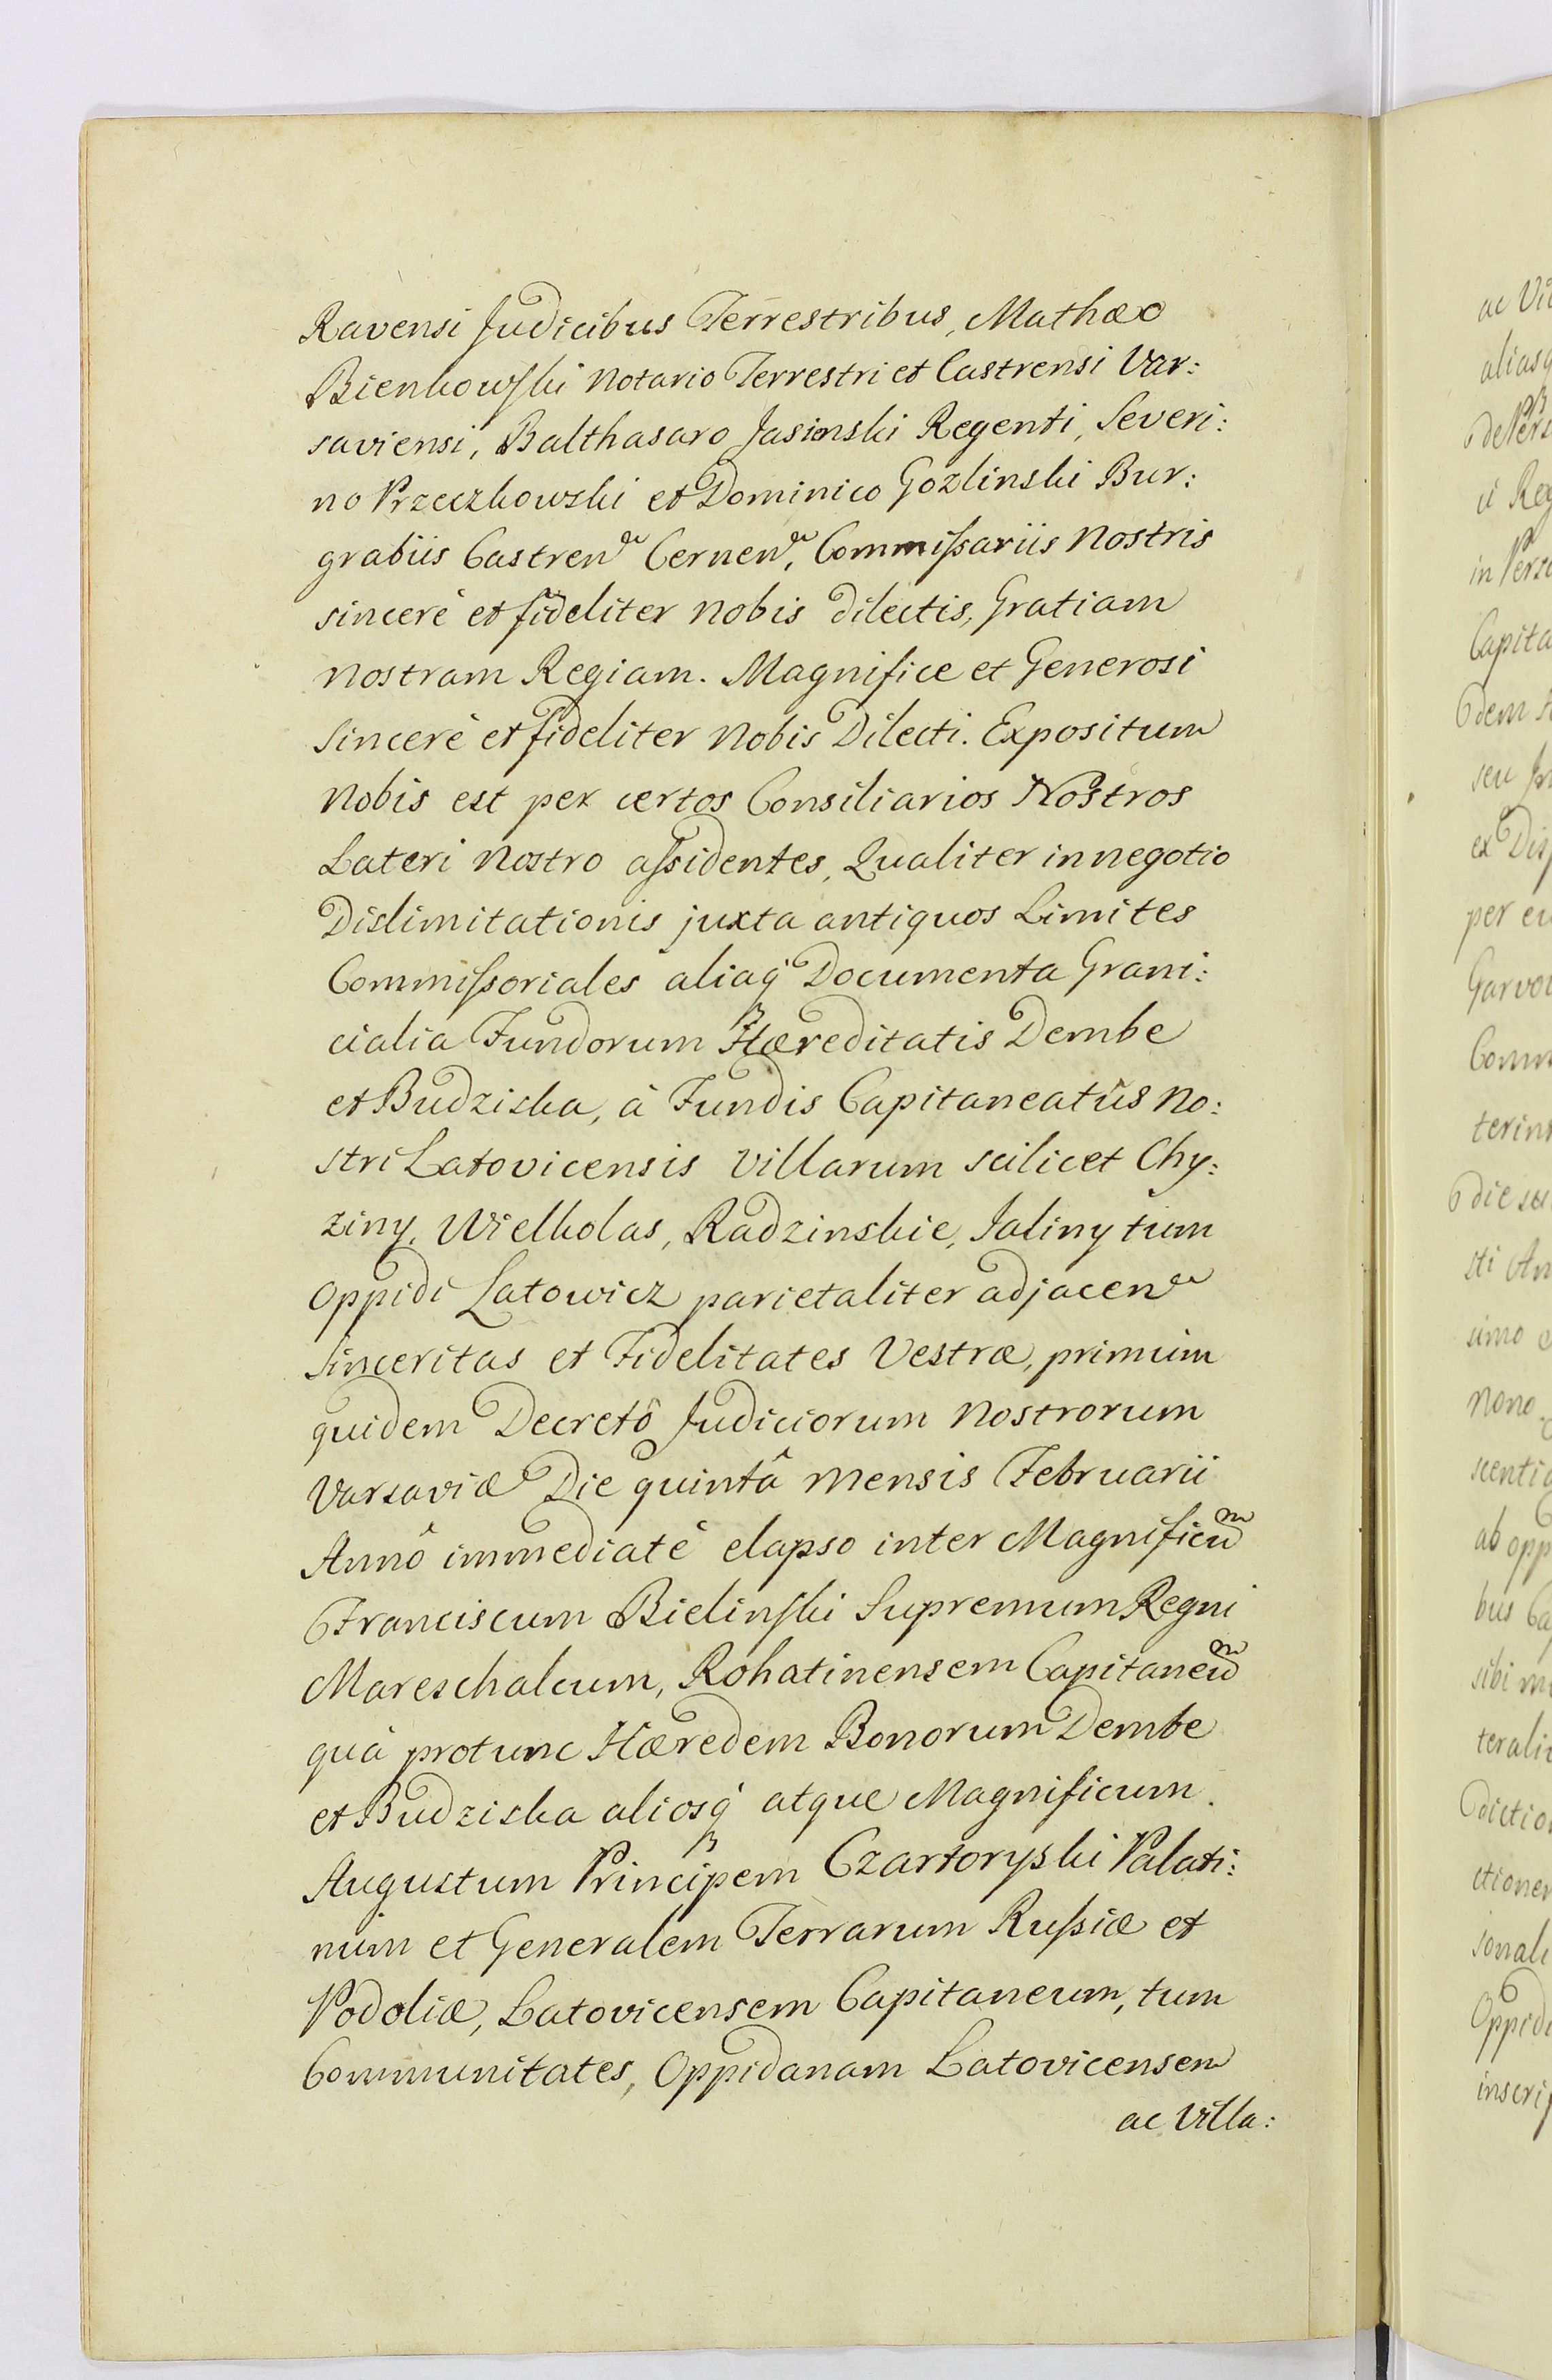 Ravensi Judicibus Terrestribus, Mathæo
Bienkowſki Notario Terrestri et Castrensi Var:
saviensi, Balthasaro Jasinski Regenti, Severi:
no Przeczkowski et Dominico Gozlinski Bur:
grabiis Castren Cernen, Commiſsariis Nostris
sincerè et fideliter Nobis dilectis, Gratiam
Nostram Regiam. Magnifice et Generosi
Sincerè et fideliter Nobis Dilecti. Expositum
Nobis est per certos Consiliarios Nostros
Lateri Nostro aſsidentes, Qualiter in negotio
Dislimitationis juxta antiquos Limites
Commiſsoriales aliaq́ Documenta Grani:
cialia Fundorum Hæreditatis Dembe
et Budziska, à Fundis Capitaneatûs No:
stri Latovicensis Villarum scilicet Chy:
ziny, Wielkolas, Radzinskie, Jaliny tum
Oppidi Latowicz parietaliter adjacen
Sinceritas et Fidelitates Vestræ, primùm
quidem Decretô Judiciorum Nostrorum
Varsaviæ Die quintâ Mensis Februarii
Annô immediatè elapso inter Magnificũ
Franciscum Bielinſki Supremum Regni
Mareschalcum, Rohatinensem Capitaneũ
quà protunc Hæredem Bonorum Dembe
et Budziska aliosq́ atque Magnificum
Augustum Principem Czartoryski Palati:
num et Generalem Terrarum Ruſsiæ et
Podoliæ, Latovicensem Capitaneum, tum
Communitates, Oppidanam Latovicensem
ac Villa: